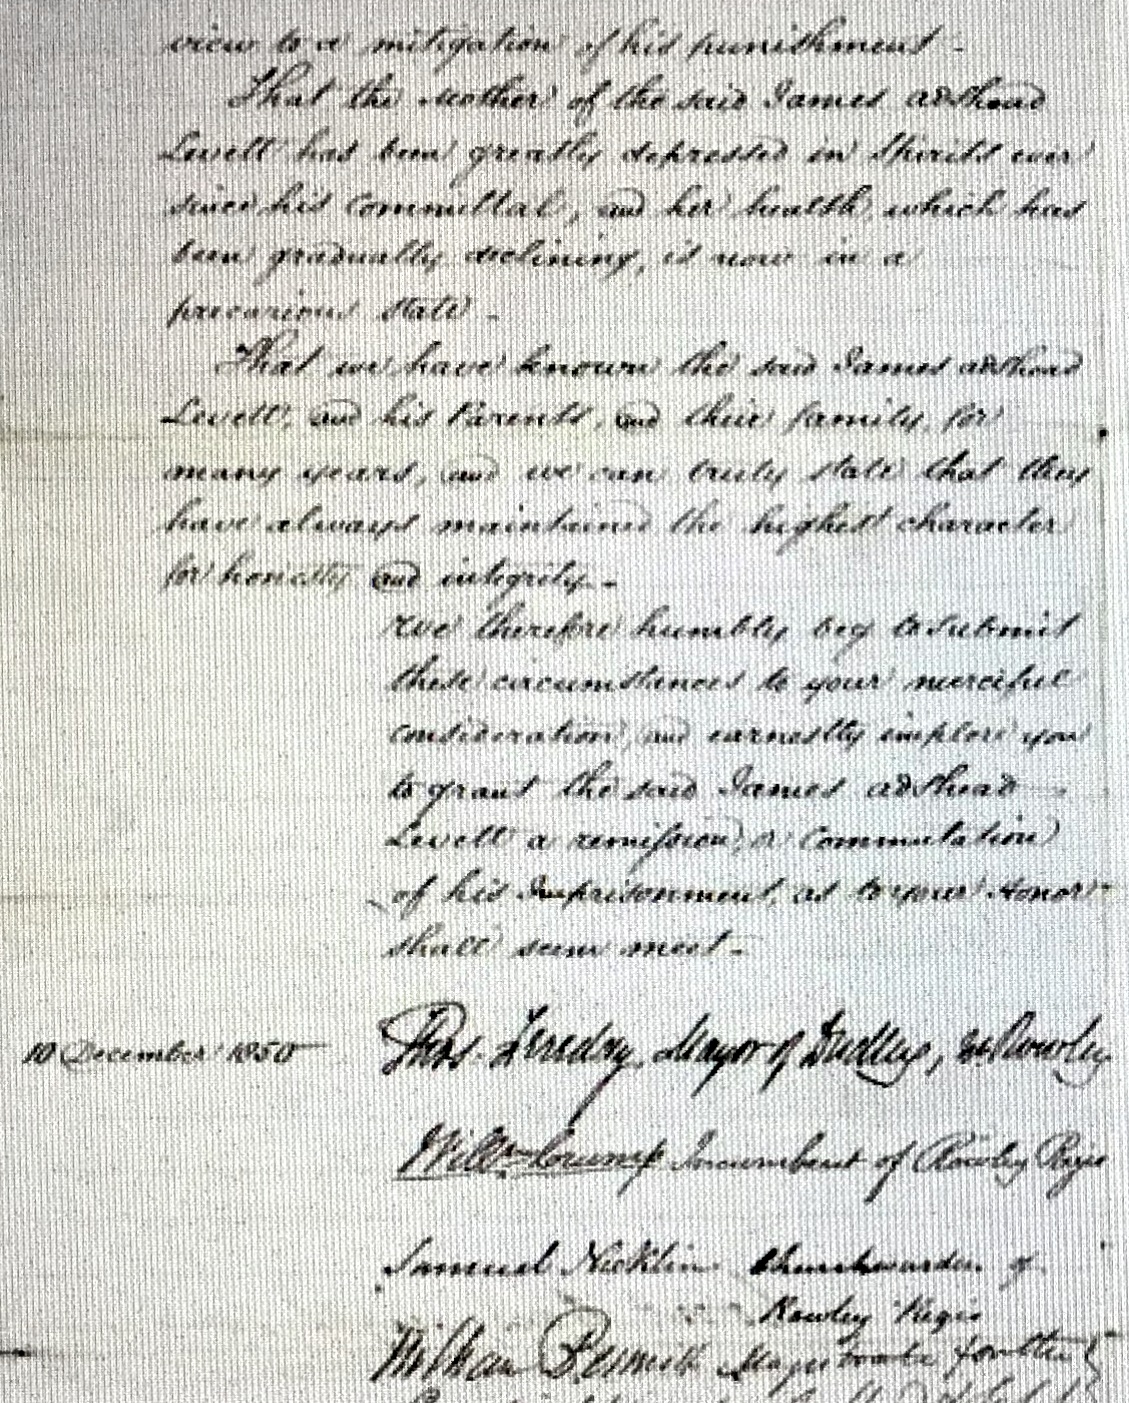 view to a mitigation of his punishment -
That the Mother of the said James Adshead
Levett has been greatly depressed in Spirits ever
since his Committal, and her health, which has
been gradually declining, is now in a
precarious state -
That we have known the said James Adshead
Levett, and his Parents, and their family, for
many years, and we can truly state that they
have always maintained the highest character
for honesty and integrity -
We therefore humbly beg to submit
these circumstances to your merciful
consideration, and earnestly implore you
to grant the said James Adshead
Levett a remission, or Commutation
of his Imprisonment, as to your Honor
shall seem meet -
10 December 1850
Thos. Fereday, Mayor of Dudley, Rowley
Willm Crump Incumbent of Rowley Regis
Samuel Nicklin Churchwarden of
Rowley Regis
William Bennitt Magistrate for the